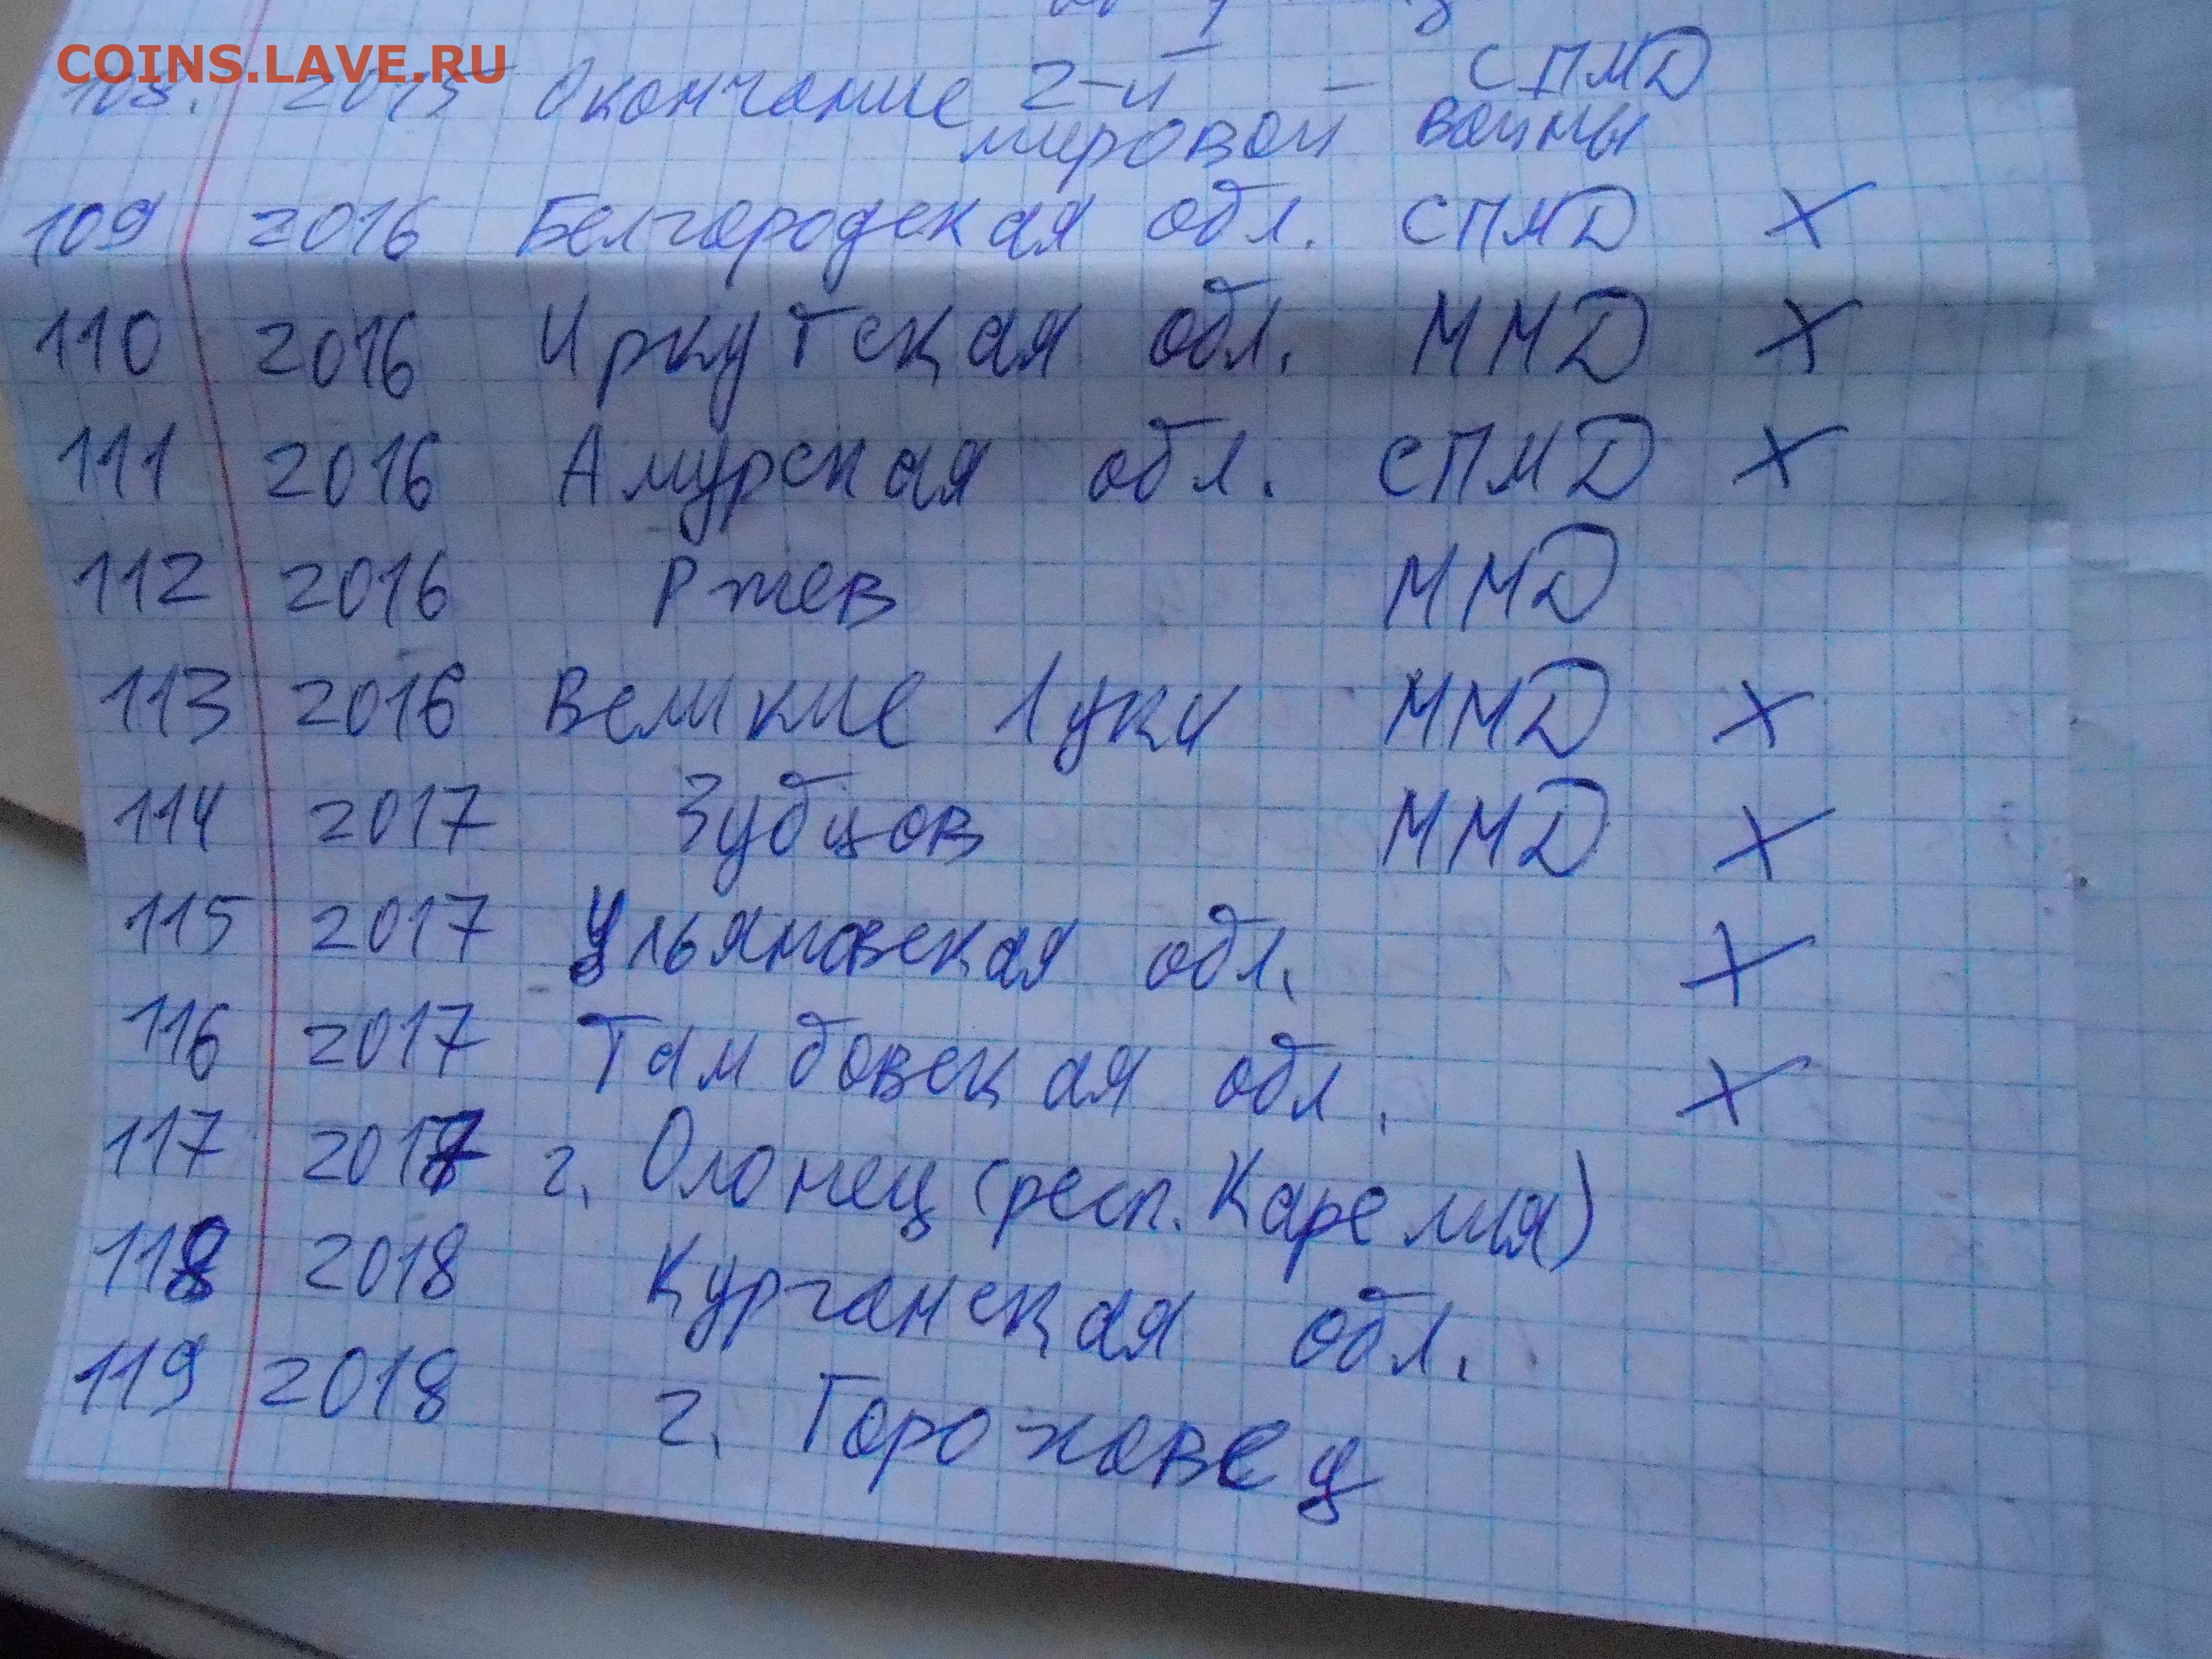 COINS.LAVE.RU
108. 2015 Окончание 2-й – СПМД
мировой войны
109 2016 Белгородская обл. СПМД X
110 2016 Иркутская обл. ММД X
111 2016 Амурская обл. СПМД X
112 2016 Ржев ММД
113 2016 Великие Луки ММД X
114 2017 Зубцов ММД X
115 2017 Ульяновская обл. X
116 2017 Тамбовская обл. X
117 2017 г. Олонец (респ. Карелия)
118 2018 Курганская обл.
119 2018 г. Гороховец